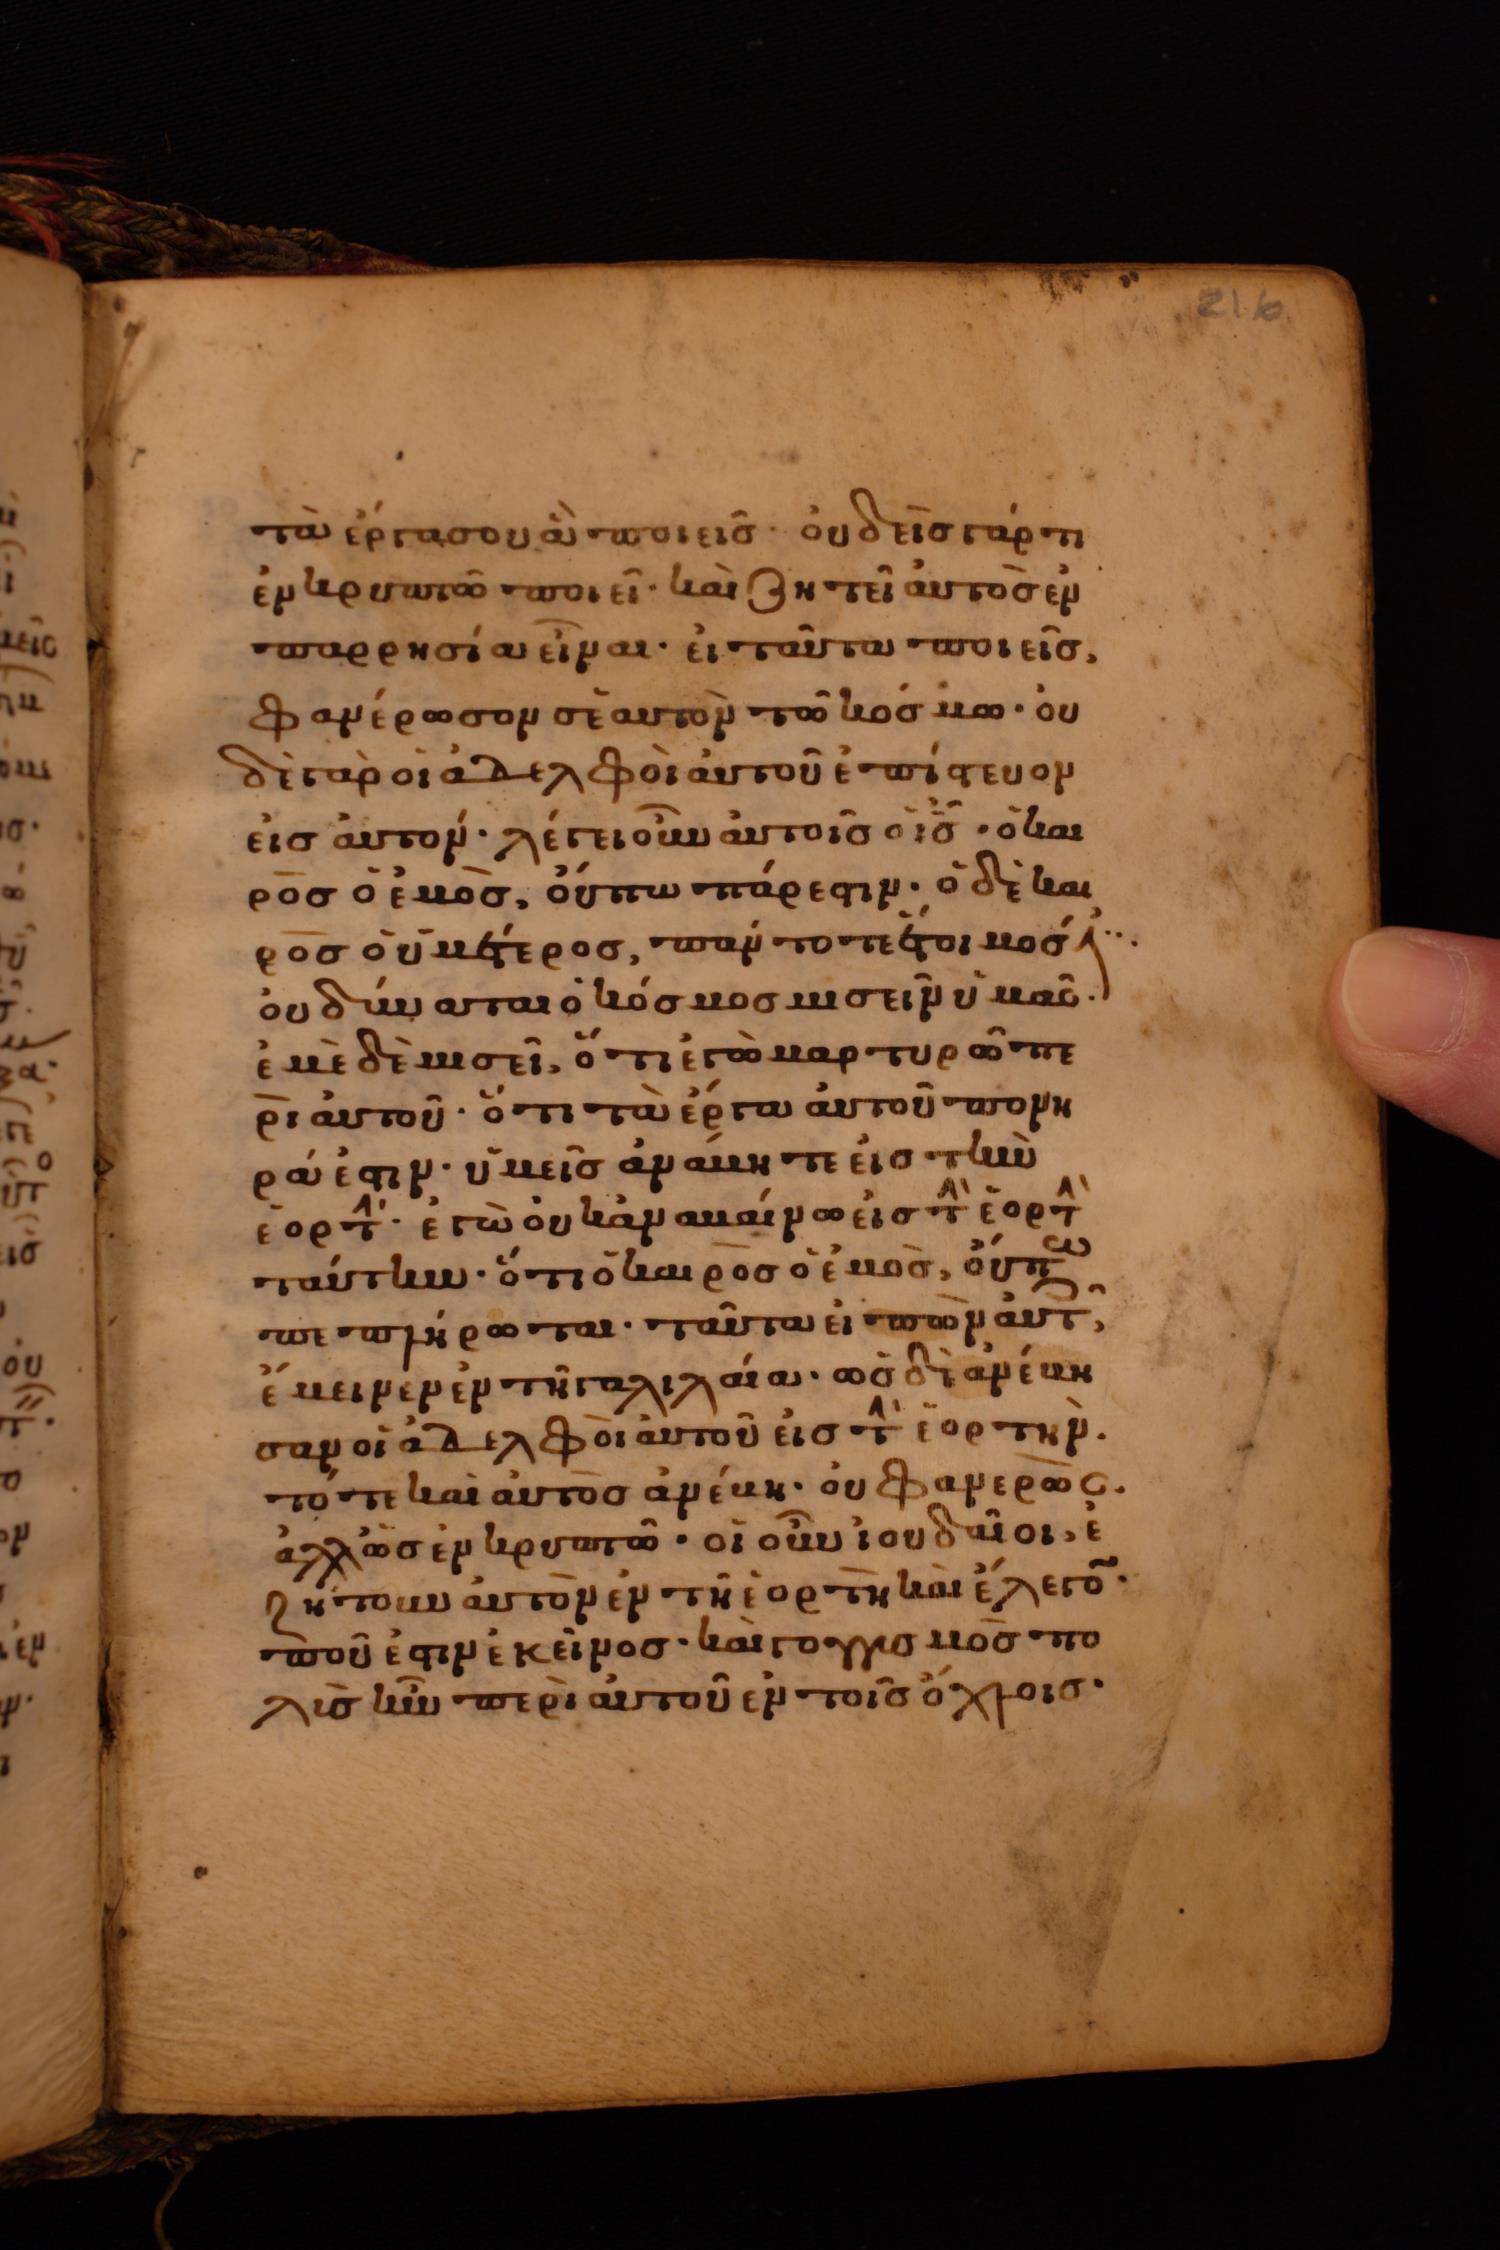 216
τὰ ἔργα σου ἃ ποιεῖς· οὐδεὶς γάρ τι
ἐν κρυπτῶ ποιεῖ· καὶ ζητεῖ αὐτὸς ἐν
παρρησία εἶναι· εἰ ταῦτα ποιεῖς,
φανέρωσον σεαυτὸν τῶ κόσμω· οὐ
δὲ γὰρ οἱ ἀδελφοὶ αὐτοῦ ἐπίστευον
εἰς αὐτόν· λέγει οὖν αὐτοῖς ὁ ις̅· ὁ και
ρὸς ὁ ἐμὸς, οὔπω πάρεστιν· ὁ δὲ και
ρὸς ὁ ὑμέτερος, πάντοτέ ἐστιν ἕτοιμος·
οὐ δύναται ὁ κόσμος μισεῖν ὑμᾶς·
ἐμὲ δὲ μισεῖ, ὅτι ἐγὼ μαρτυρῶ πε
ρὶ αὐτοῦ· ὅτι τὰ ἔργα αὐτοῦ πονη
ρά ἐστιν· ὑμεῖς ἀνάβητε εἰς τὴν
ἑορτ̀· ἐγὼ οὐκ ἀναβαίνω εἰς τ̀ ἑορτ̀
ταύτην· ὅτι ὁ καιρὸς ὁ ἐμὸς, οὔπω
πεπλήρωται· ταῦτα εἰπὼν αὐτ̑,
ἔμεινεν ἐν τῆ γαλιλαία· ὡς δὲ ἀνέβη
σαν οἱ ἀδελφοὶ αὐτοῦ εἰς τ̀ ἑορτὴν.
τότε καὶ αὐτὸς ἀνέβη· οὐ φανερῶς.
ἀλλ' ὡς ἐν κρυπτῶ· οἱ οὖν ἰουδαῖοι, ἐ
ζήτουν αὐτὸν ἐν τῆ ἑορτῆ καὶ ἔλεγο̅·
ποῦ ἐστιν ἐκεῖνος· καὶ γογγυσμὸς πο
λὺς ἦν περὶ αὐτοῦ ἐν τοῖς ὄχλοις·